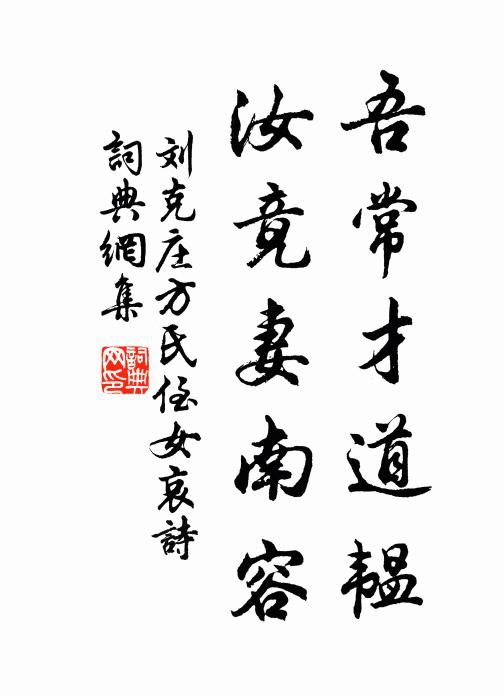 吾常才道韫
汝竟妻南容
刘克庄方氏侄女哀詩
詞典網集
詞典网印